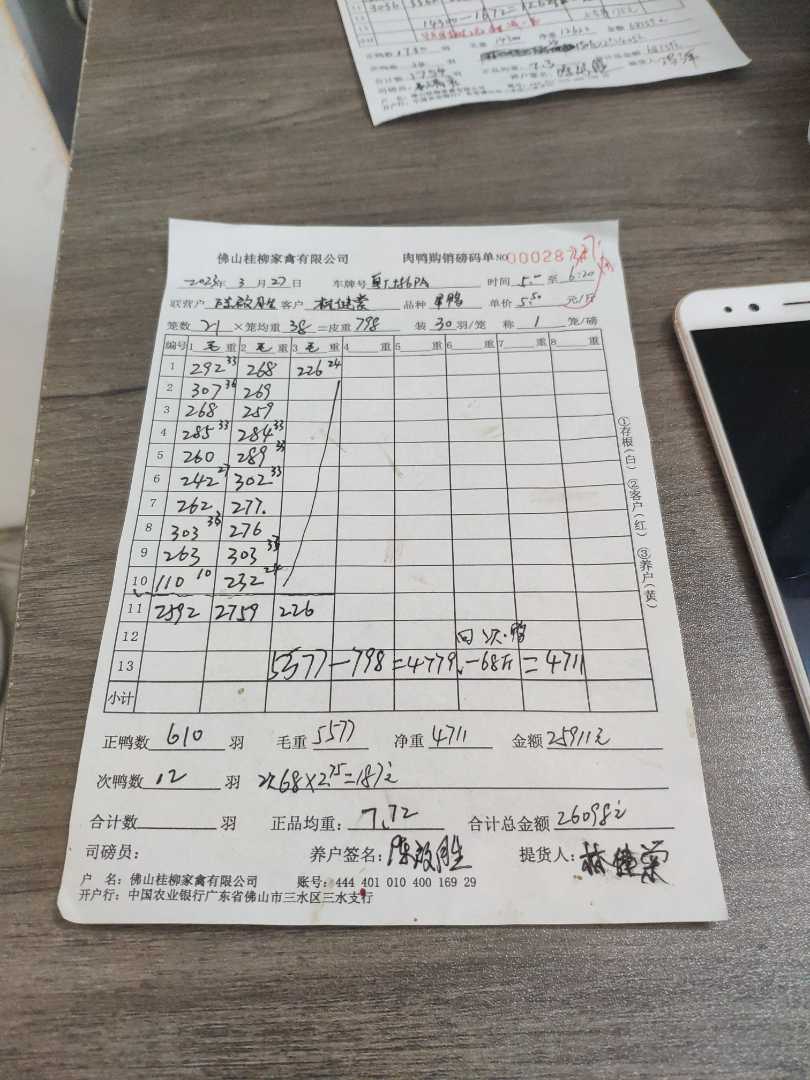 14300-1672=12628
佛山桂柳家禽有限公司 肉鸭购销磅码单 NO 00028
2023年 3 月 27 日 车牌号 时间 5.00 至 6:20
联营户 陈效胜 客户 林健棠 品种 单价 5.50 元/斤
笼数 21 ×笼均重 38 =皮重 798 装 30 羽/笼 称 1 笼/磅
编号 1 毛 重 2 毛 重 3 毛 重 4 重 5 重 6 重 7 重 8 重
1 292 33 268 226 24
2 307 36 269
3 268 259
4 285 33 284 33
5 260 289 33
6 242 27 302 33
7 262 277
8 303 36 276
9 263 303 33
10 110 10 232 24
11 2592 2759 226
12 回次鸭
13 5577-798=4779-68斤=4711
小计
正鸭数 610 羽 毛重 5577 净重 4711 金额 25911元
次鸭数 12 羽 次68×2.75=187元
合计数 羽 正品均重: 7.72 合计总金额 26098元
司磅员: 养户签名: 陈效胜 提货人: 林健棠
户 名: 佛山桂柳家禽有限公司 账号: 444 401 010 400 169 29
开户行: 中国农业银行广东省佛山市三水区三水支行
①存根(白) ②客户(红) ③养户(黄)